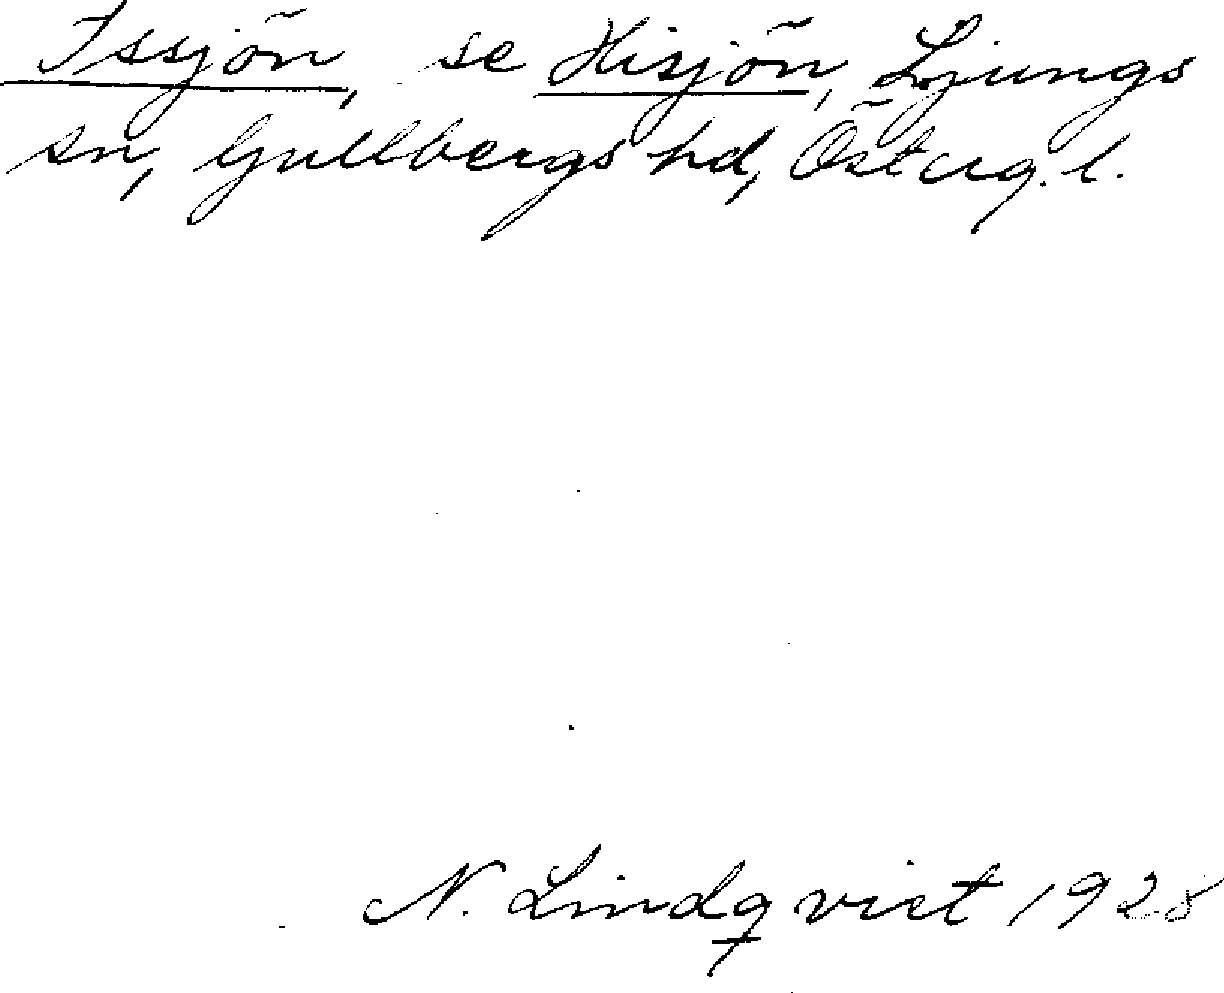 Issjön, se Hisjön, Ljungs
sn, Gullbergs hd, Österg. l.
N. Lindqvist 1928